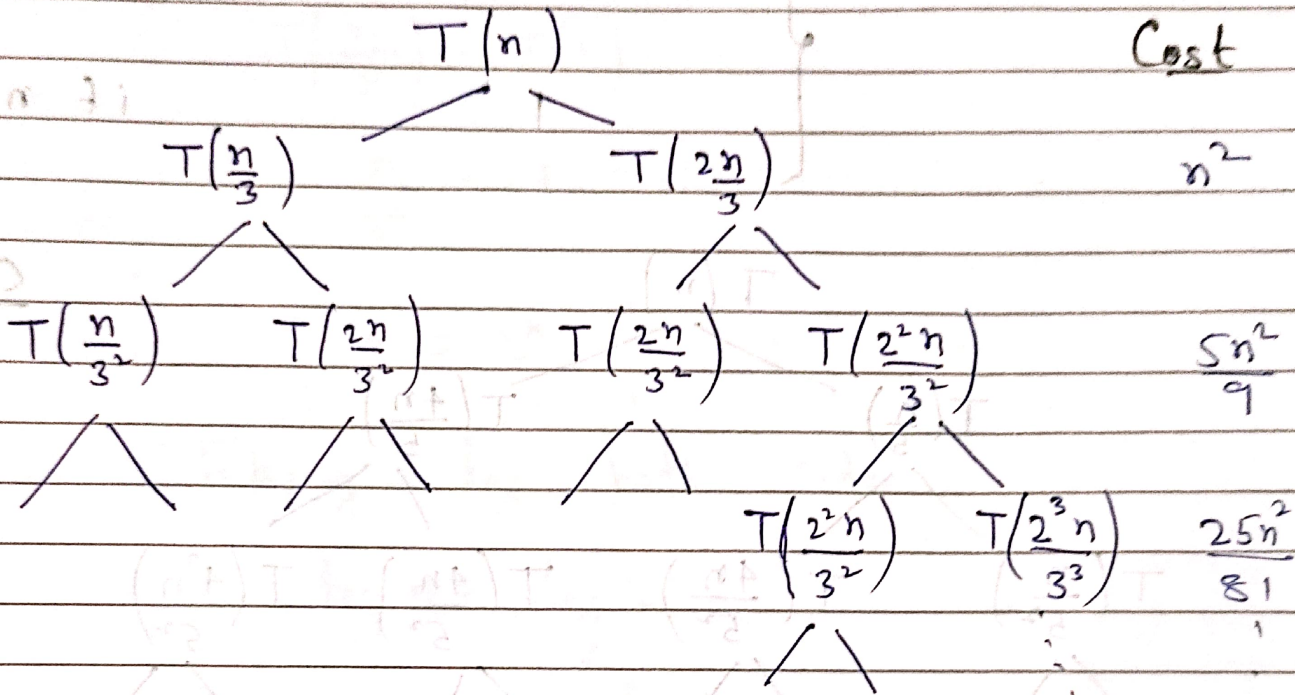 T(n) Cost
T(n/3) T(2n/3) n²
T(n/3²) T(2n/3²) T(2n/3²) T(2²n/3²) 5n²/9
T(2²n/3²) T(2³n/3³) 25n²/81